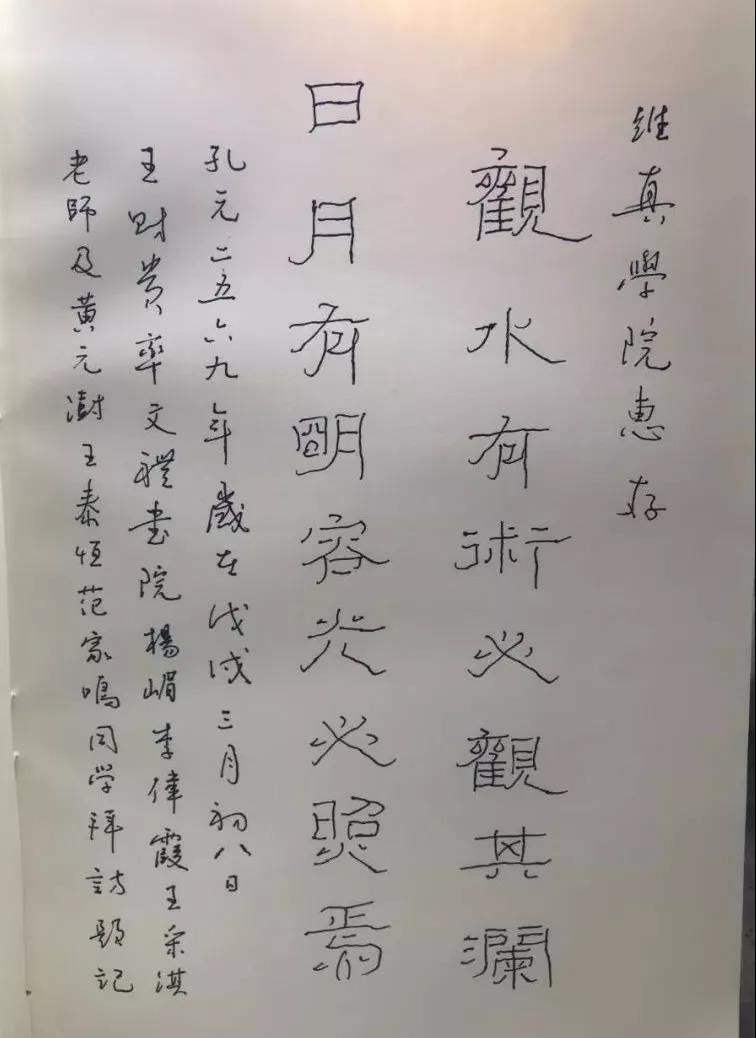 維真學院惠存
觀水有術必觀其瀾
日月有明容光必照焉
孔元二五六九年歲在戊戌三月初八日
王财貴率文禮書院楊嵋李偉霞王采淇
老師及黃元澍王泰恒范家鳴同学拜訪題記